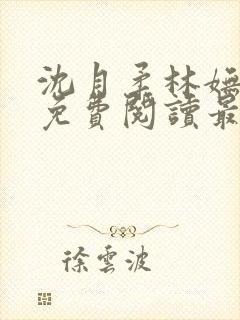 沈月柔林嫵
免費閱讀最
徐雲波